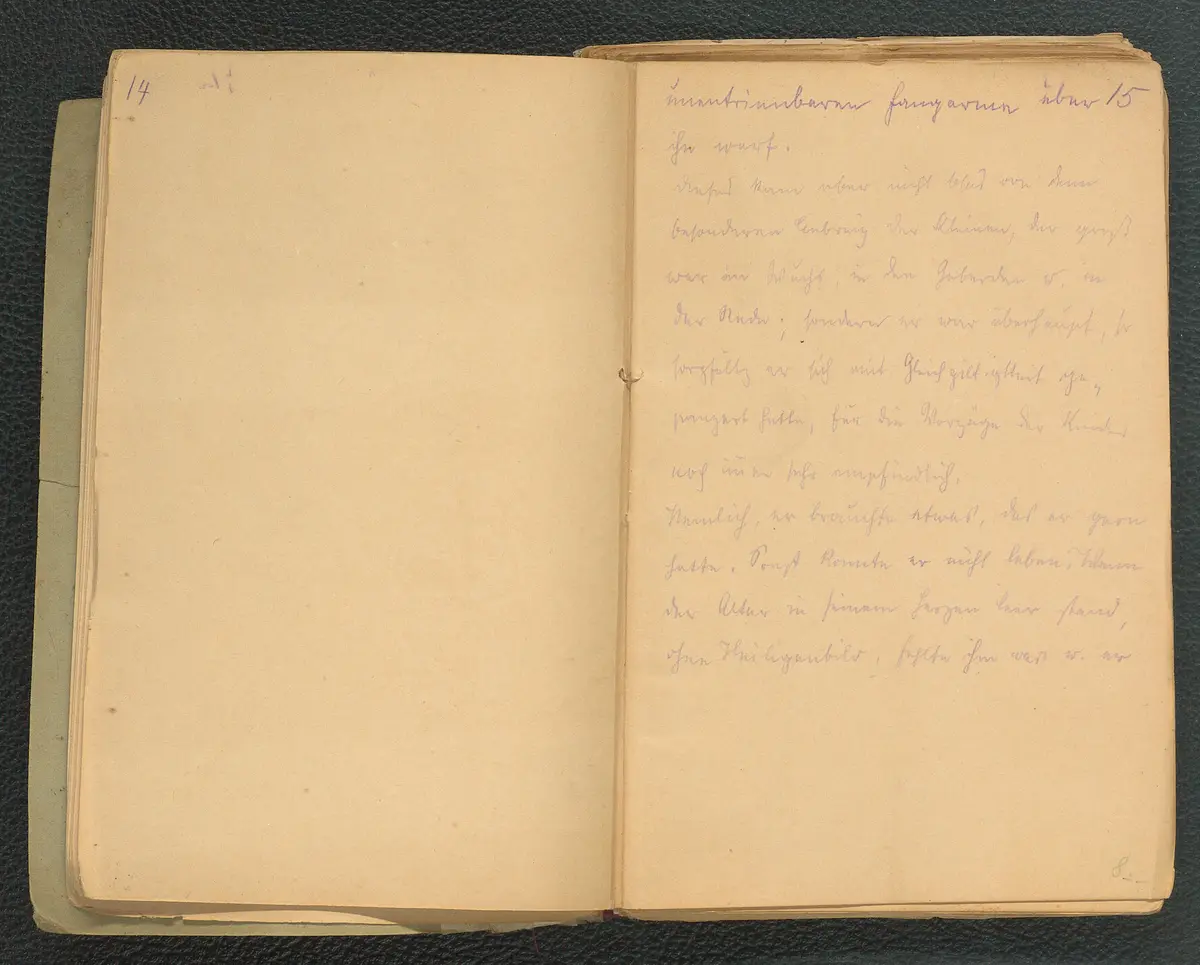 14
unentrinnbaren Fangarme über 15
ihn warf.
Dieses kam aber nicht blos von dem
besonderen Liebreiz der Kleinen, der groß
war im Wuchs, in den Geberden u. in
der Rede; sondern er war überhaupt, so
sorgfältig er sich mit Gleichgiltigkeit ge-
panzert hatte, für die Vorzüge der Kinder
noch immer sehr empfindlich.
Nemlich, er brauchte etwas, das er gern
hatte. Sonst konnte er nicht leben. Wenn
der Altar in seinem Herzen leer stand,
ohne Heiligenbild, fehlte ihm was u. er
8